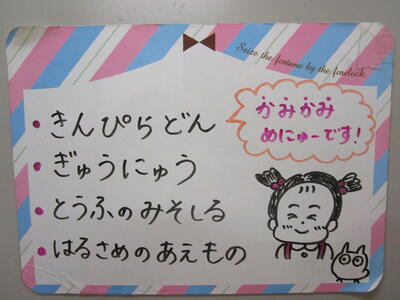 Seize the fortune by the forelock.
かみかみ
めにゅーです!
きんぴらどん
ぎゅうにゅう
とうふのみそしる
はるさめのあえもの